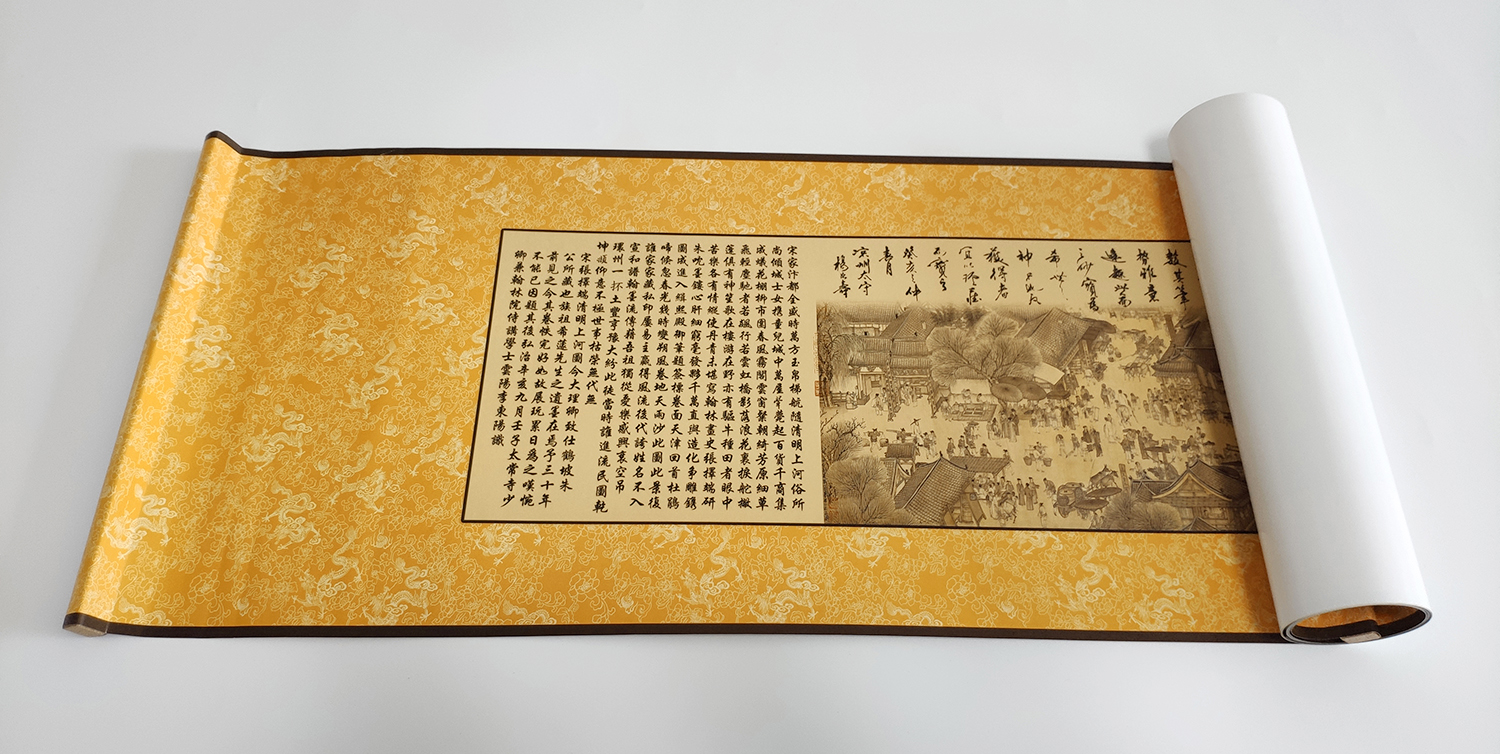 數其筆
獲得者
滨州太守
宋家汴都全盛時萬方玉帛梯航隨清明上河俗所
尚傾城士女携童兒城中萬屋翚甍起百貨千商集
成蟻花棚柳市圍春風霧閣雲窗粲朝綺芳原細草
飛輕塵馳者若飆行若雲虹橋影落浪花裏捩舵撇
篷俱有神笙歌在樓游在野亦有驅牛種田者眼中
苦樂各有情縱使丹青未堪寫翰林畫史張擇端研
朱吮墨鏤心肝細窮毫髮夥千萬直與造化爭雕鐫
圖成進入緝熙殿御筆題簽標卷面天津回首杜鵑
啼倏忽春光幾時變朔風卷地天雨沙此圖此景復
誰家家藏私印屢易主贏得風流後代誇姓名不入
宣和譜翰墨流傳藉吾祖獨從憂樂感興衰空吊
環州一抔土豐亨豫大紛此徒當時誰進流民圖乾
坤頫仰意不極世事枯榮無代無
宋張擇端清明上河圖今大理卿致仕鶴坡朱
公所藏也族祖希蘧先生之遺墨在焉予三十年
前見之今其卷帙完好如故展玩累日爲之嘆惋
不能已因題其後弘治辛亥九月壬子太常寺少
卿兼翰林院侍講學士雲陽李東陽識